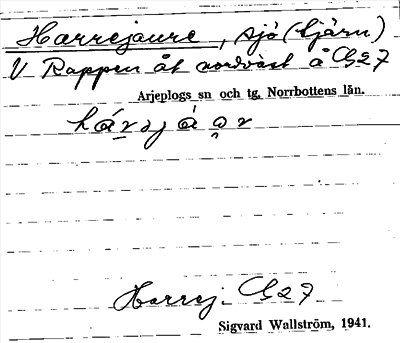 Harrejaure, sjö (tjärn)
V Rappen åt nordväst å G27
Arjeplogs sn och tg, Norrbottens län.
Harrej. G27
Sigvard Wallström, 1941.